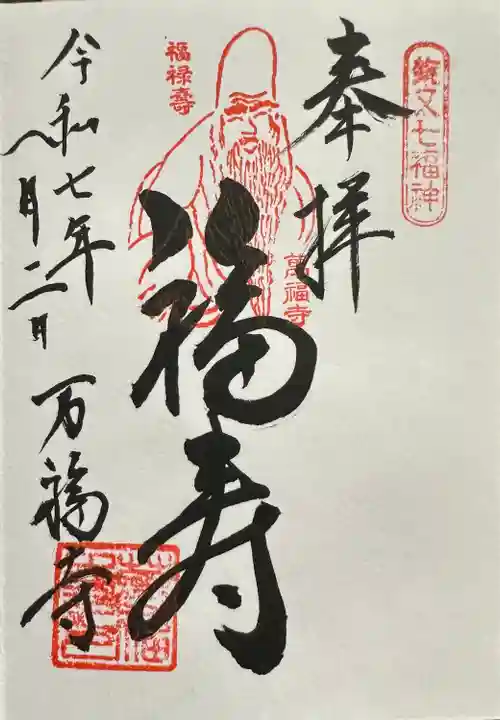 文七福神
奉拝
福禄壽
萬福寺
八福寿
令和七年
八月二日
万福寺